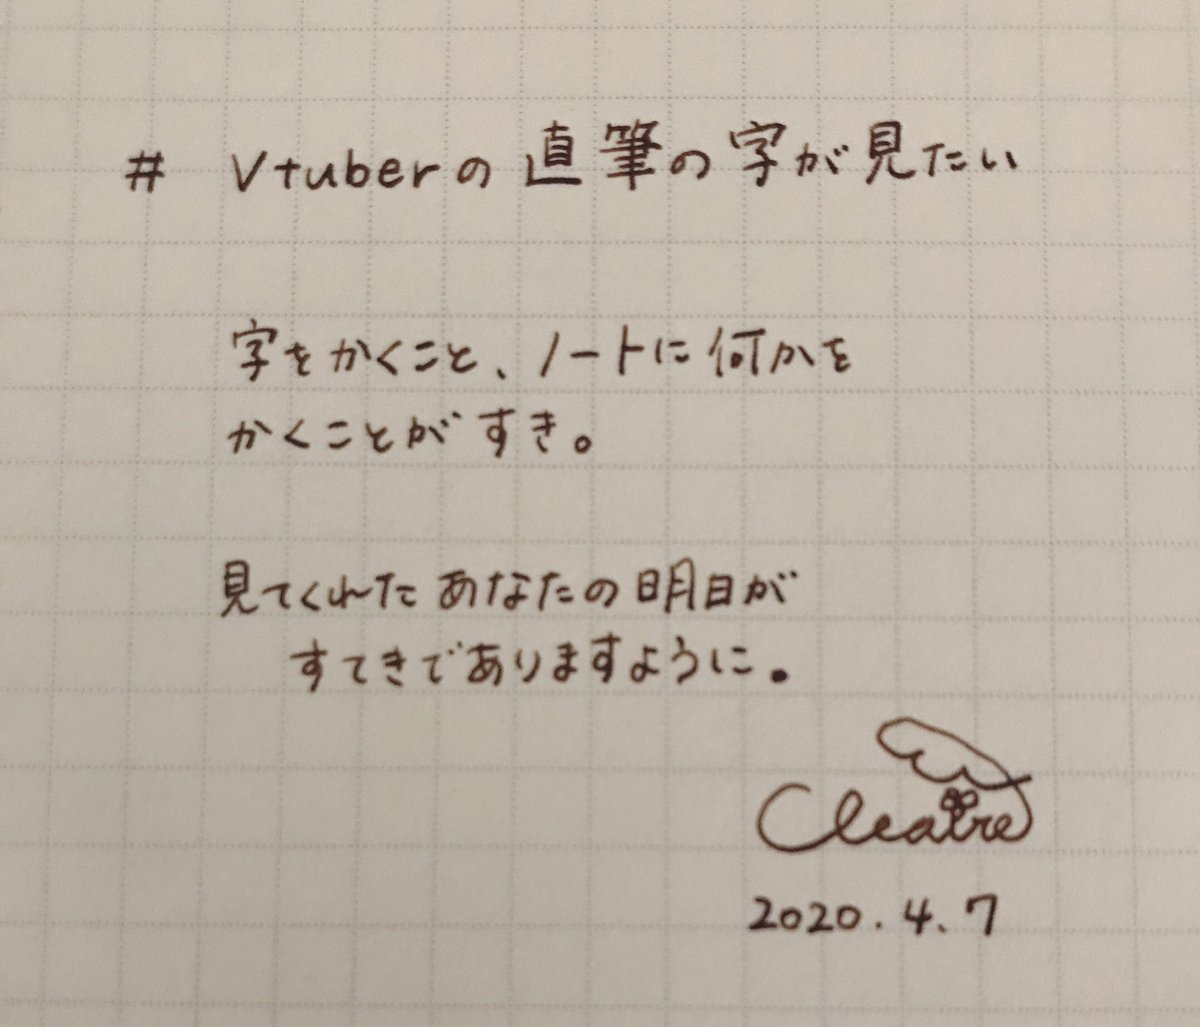 # Vtuberの直筆の字が見たい
字をかくこと、ノートに何かを
かくことがすき。
見てくれたあなたの明日が
すてきでありますように。
Cleaire
2020.4.7